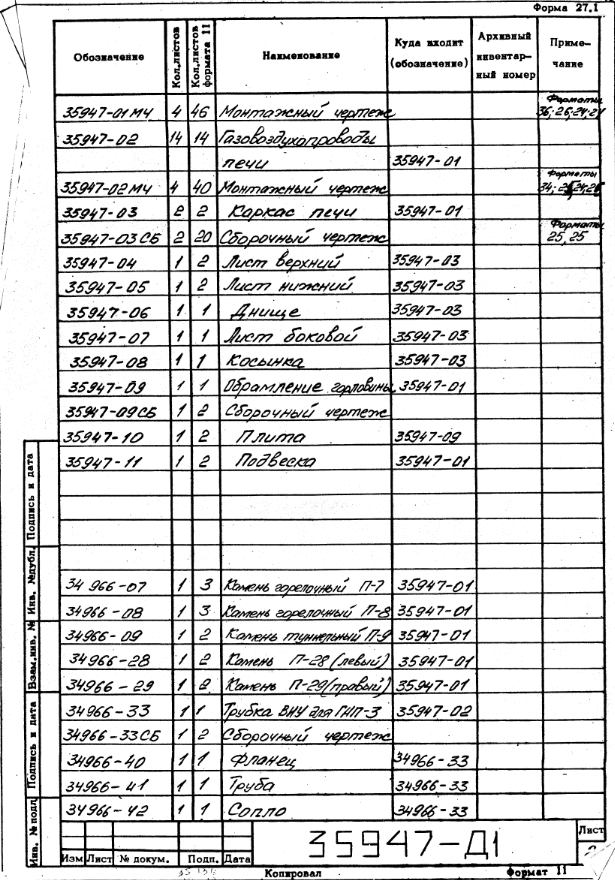 Форма 27.1
Обозначение Кол.листов Кол.листов формата 11 Наименование Куда входит (обозначение) Архивный инвентар-ный номер Приме-чание
35947-01МЧ 4 46 Монтажный чертеж Форматы 36; 26; 24; 21
35947-02 14 14 Газовоздухопроводы
печи 35947-01
35947-02МЧ 4 40 Монтажный чертеж Форматы 34;
35947-03 2 2 Каркас печи 35947-01
35947-03СБ 2 20 Сборочный чертеж Форматы 25, 25
35947-04 1 2 Лист верхний 35947-03
35947-05 1 2 Лист нижний 35947-03
35947-06 1 1 Днище 35947-03
35947-07 1 1 Лист боковой 35947-03
35947-08 1 1 Косынка 35947-03
35947-09 1 1 Обрамление горловины 35947-01
35947-09СБ 1 2 Сборочный чертеж
35947-10 1 2 Плита 35947-09
35947-11 1 2 Подвеска 35947-01
34966-07 1 3 Камень горелочный П-7 35947-01
34966-08 1 3 Камень горелочный П-8 35947-01
34966-09 1 2 Камень туннельный П-9 35947-01
34966-28 1 2 Камень П-28 (левый) 35947-01
34966-29 1 2 Камень П-29 (правый) 35947-01
34966-33 1 1 Трубка ВНУ для ГНП-3 35947-02
34966-33СБ 1 2 Сборочный чертеж
34966-40 1 1 Фланец 34966-33
34966-41 1 1 Труба 34966-33
34966-42 1 1 Сопло 34966-33
Инв. № подл. Подпись и дата Взам.инв. № Инв. №дубл. Подпись и дата
35947-Д1
Лист
Изм Лист № докум. Подп. Дата
Копировал Формат 11